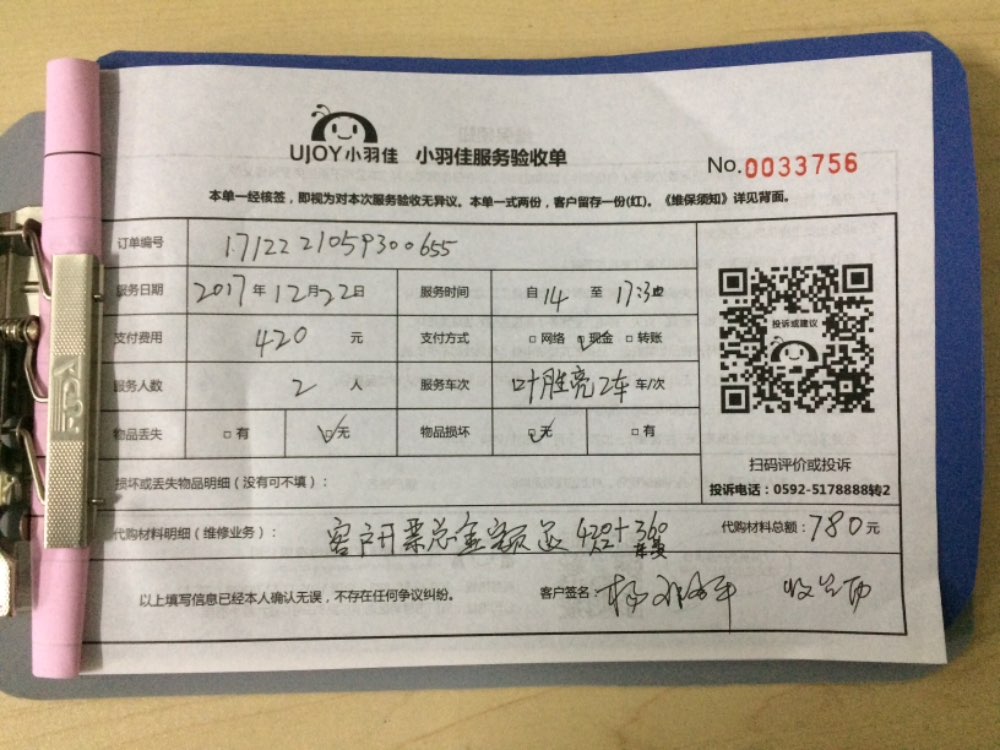 UJOY小羽佳 小羽佳服务验收单
No.0033756
本单一经核签，即视为对本次服务验收无异议。本单一式两份，客户留存一份(红)。《维保须知》详见背面。
订单编号 1712221059300655
服务日期 2017年12月22日 服务时间 自14至17:30
支付费用 420元 支付方式 □网络 □现金 □转账
服务人数 2人 服务车次 叶胜亮2车 车/次
物品丢失 □有 □无 物品损坏 □无 □有
投诉或建议
扫码评价或投诉
投诉电话：0592-5178888转2
损坏或丢失物品明细（没有可不填）：
代购材料明细（维修业务）： 客户开票总金额 420+360 代购材料总额：780元
以上填写信息已经本人确认无误，不存在任何争议纠纷。 客户签名：